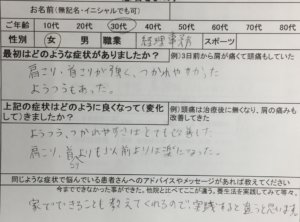 お名前(無記名・イニシャルでも可)
ご年齢 10代 20代 30代 40代 50代 60代 70代
性別 女 男 職業 経理事務 スポーツ
最初はどのような症状がありましたか? 例)3日前から肩が痛くて頭痛もしていた
肩こり、首こりが強く、つかれやすかった
ようつうもあった。
上記の症状はどのように良くなって(変化して)きましたか? 例)頭痛は治療後に無くなり、肩の痛みも改善してきた
ようつう、つかれやすさはとても改善した
肩こり、首こりも以前よりは楽になった。
同じような症状で悩んでいる患者さんへのアドバイスやメッセージがあれば教えてください
今までできなかった事ができた。他院と比べてここが違う。養生法を実践してみて等々。
家でできることも教えてくれるので、実践すると違うと思います。